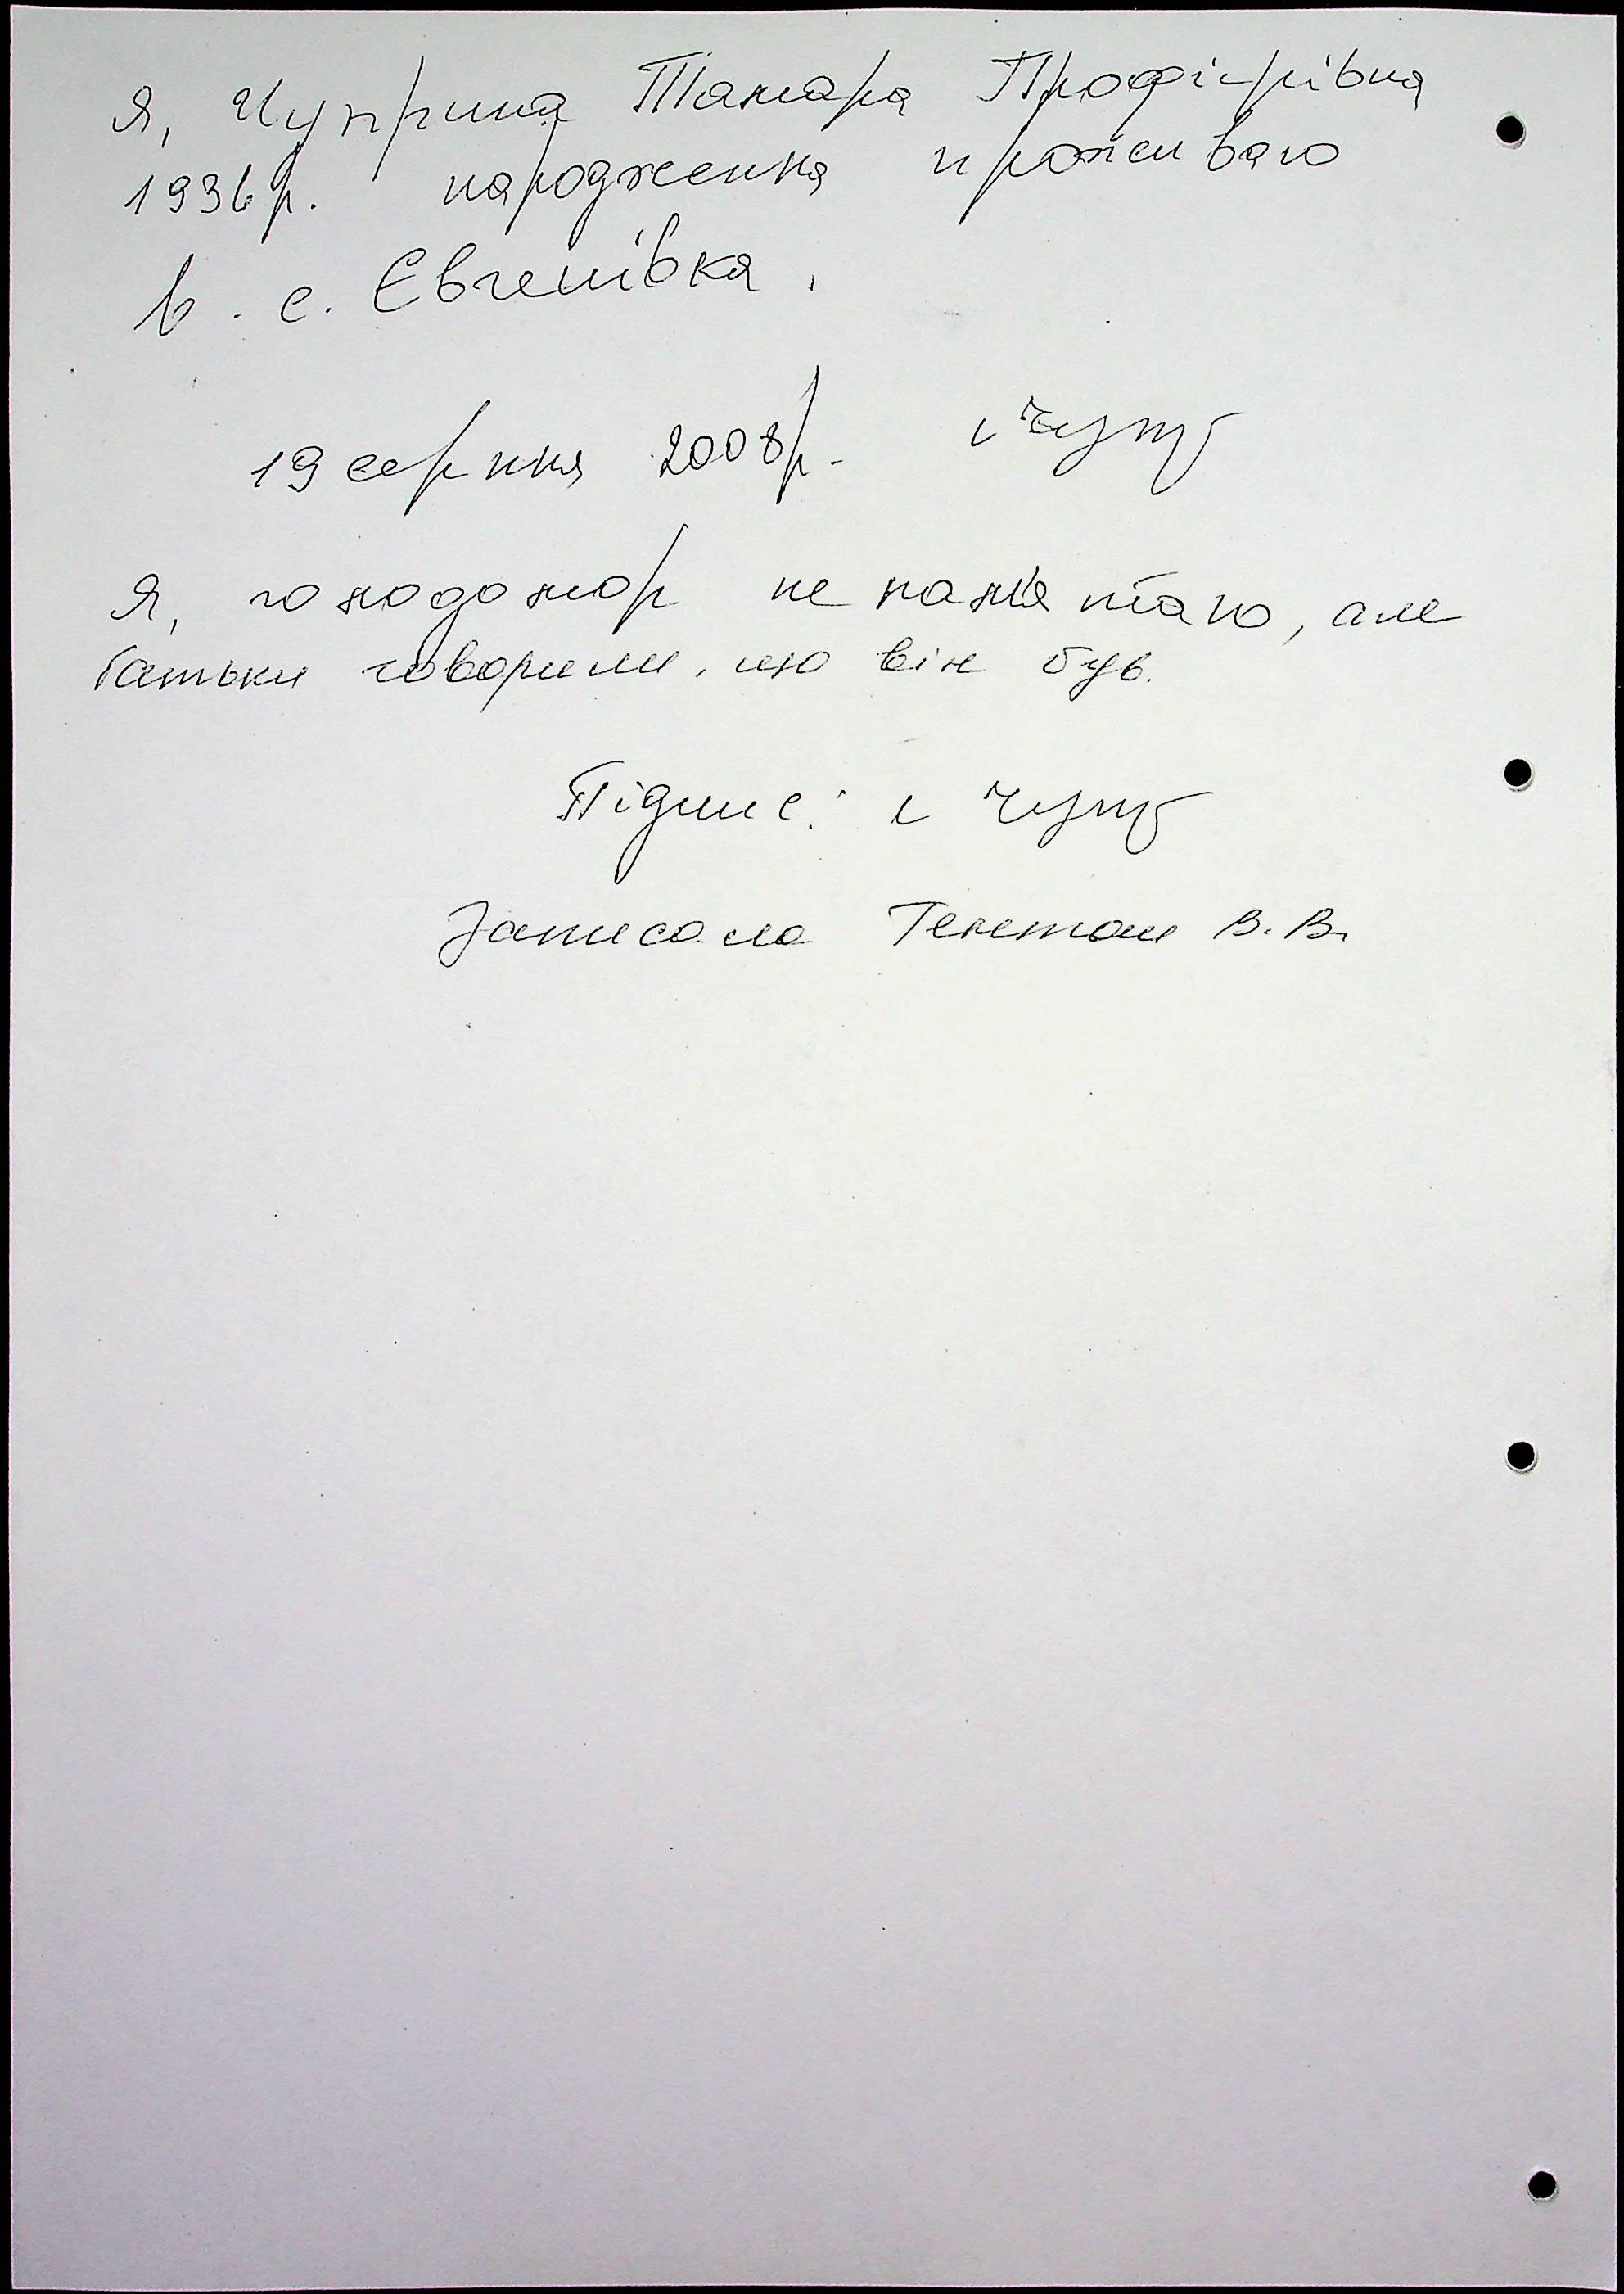 Я, Чуприна Тамара Профірівна
1936р. народження проживаю
в. с. Євгенівка.
19 серпня 2008р.
Я, голодомор не пам'ятаю, але
батьки говорили, що він був.
Підпис:
Записала В. В.